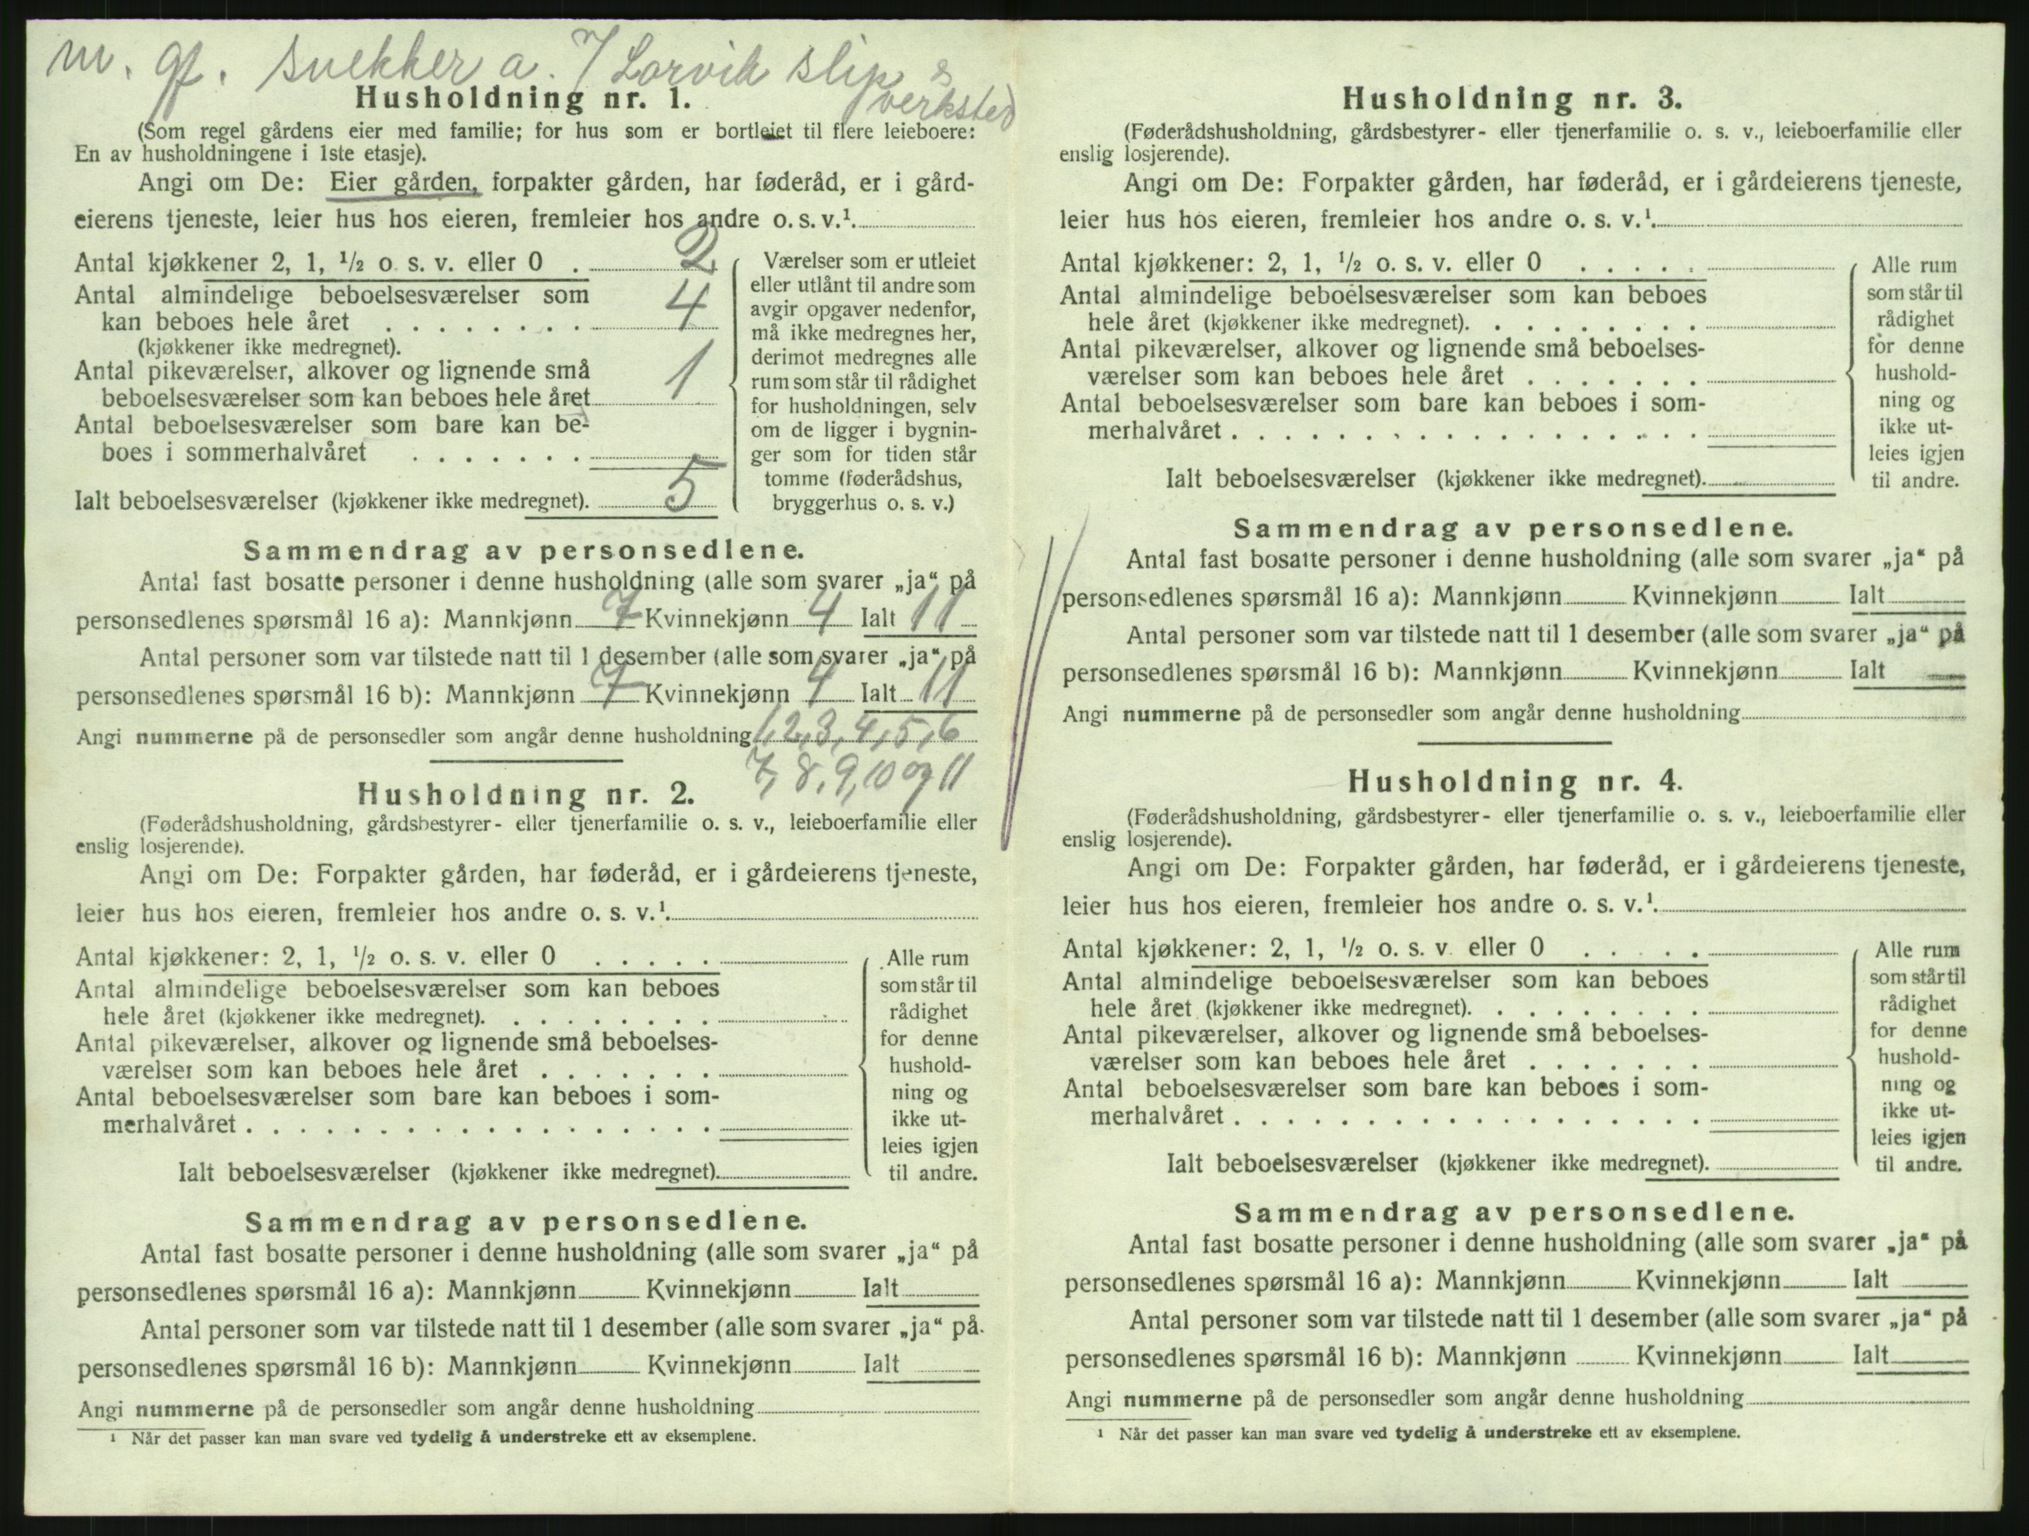 m. gf. snekker a. 7 Larvik slip &
verksted
Husholdning nr. 1.
(Som regel gårdens eier med familie; for hus som er bortleiet til flere leieboere:
En av husholdningene i 1ste etasje).
Angi om De: Eier gården, forpakter gården, har føderåd, er i gård-
eierens tjeneste, leier hus hos eieren, fremleier hos andre o. s. v.¹.
Antal kjøkkener 2, 1, ¹/₂ o. s. v. eller 0 . 2
Antal almindelige beboelsesværelser som
kan beboes hele året . . . . . . . . 4
(kjøkkener ikke medregnet).
Antal pikeværelser, alkover og lignende små
beboelsesværelser som kan beboes hele året 1
Antal beboelsesværelser som bare kan be-
boes i sommerhalvåret . . . . . . .
Ialt beboelsesværelser (kjøkkener ikke medregnet). 5
Værelser som er utleiet
eller utlånt til andre som
avgir opgaver nedenfor,
må ikke medregnes her,
derimot medregnes alle
rum som står til rådighet
for husholdningen, selv
om de ligger i bygnin-
ger som for tiden står
tomme (føderådshus,
bryggerhus o. s. v.)
Sammendrag av personsedlene.
Antal fast bosatte personer i denne husholdning (alle som svarer „ja“ på
personsedlenes spørsmål 16 a): Mannkjønn 7 Kvinnekjønn 4 Ialt 11
Antal personer som var tilstede natt til 1 desember (alle som svarer „ja“ på
personsedlenes spørsmål 16 b): Mannkjønn 7 Kvinnekjønn 4 Ialt 11
Angi nummerne på de personsedler som angår denne husholdning 1, 2, 3, 4, 5, 6
7, 8, 9, 10 og 11
Husholdning nr. 2.
(Føderådshusholdning, gårdsbestyrer- eller tjenerfamilie o. s. v., leieboerfamilie eller
enslig losjerende).
Angi om De: Forpakter gården, har føderåd, er i gårdeierens tjeneste,
leier hus hos eieren, fremleier hos andre o. s. v.¹.
Antal kjøkkener: 2, 1, ¹/₂ o. s. v. eller 0 . . . . .
Antal almindelige beboelsesværelser som kan beboes
hele året (kjøkkener ikke medregnet). . . . . . . . .
Antal pikeværelser, alkover og lignende små beboelses-
værelser som kan beboes hele året . . . . . . .
Antal beboelsesværelser som bare kan beboes i som-
merhalvåret . . . . . . . . . . . . . . . . . .
Ialt beboelsesværelser (kjøkkener ikke medregnet).
Alle rum
som står til
rådighet
for denne
hushold-
ning og
ikke ut-
leies igjen
til andre.
Sammendrag av personsedlene.
Antal fast bosatte personer i denne husholdning (alle som svarer „ja“ på
personsedlenes spørsmål 16 a): Mannkjønn Kvinnekjønn Ialt
Antal personer som var tilstede natt til 1 desember (alle som svarer „ja“ på.
personsedlenes spørsmål 16 b): Mannkjønn Kvinnekjønn Ialt
Angi nummerne på de personsedler som angår denne husholdning
¹ Når det passer kan man svare ved tydelig å understreke ett av eksemplene.
Husholdning nr. 3.
(Føderådshusholdning, gårdsbestyrer- eller tjenerfamilie o. s. v., leieboerfamilie eller
enslig losjerende).
Angi om De: Forpakter gården, har føderåd, er i gårdeierens tjeneste,
leier hus hos eieren, fremleier hos andre o. s. v.¹.
Antal kjøkkener: 2, 1, ¹/₂ o. s. v. eller 0 . . . . .
Antal almindelige beboelsesværelser som kan beboes
hele året (kjøkkener ikke medregnet). . . . . . . . .
Antal pikeværelser, alkover og lignende små beboelses-
værelser som kan beboes hele året . . . . . . .
Antal beboelsesværelser som bare kan beboes i som-
merhalvåret . . . . . . . . . . . . . . . . . .
Ialt beboelsesværelser (kjøkkener ikke medregnet).
Alle rum
som står til
rådighet
for denne
hushold-
ning og
ikke ut-
leies igjen
til andre.
Sammendrag av personsedlene.
Antal fast bosatte personer i denne husholdning (alle som svarer „ja“ på
personsedlenes spørsmål 16 a): Mannkjønn Kvinnekjønn Ialt
Antal personer som var tilstede natt til 1 desember (alle som svarer „ja“ på
personsedlenes spørsmål 16 b): Mannkjønn Kvinnekjønn Ialt
Angi nummerne på de personsedler som angår denne husholdning
Husholdning nr. 4.
(Føderådshusholdning, gårdsbestyrer- eller tjenerfamilie o. s. v., leieboerfamilie eller
enslig losjerende).
Angi om De: Forpakter gården, har føderåd, er i gårdeierens tjeneste,
leier hus hos eieren, fremleier hos andre o. s. v.¹.
Antal kjøkkener: 2, 1, ¹/₂ o. s. v. eller 0 . . . . .
Antal almindelige beboelsesværelser som kan beboes
hele året (kjøkkener ikke medregnet). . . . . . . . .
Antal pikeværelser, alkover og lignende små beboelses-
værelser som kan beboes hele året . . . . . . .
Antal beboelsesværelser som bare kan beboes i som-
merhalvåret . . . . . . . . . . . . . . . . . .
Ialt beboelsesværelser (kjøkkener ikke medregnet).
Alle rum
som står til
rådighet
for denne
hushold-
ning og
ikke ut-
leies igjen
til andre.
Sammendrag av personsedlene.
Antal fast bosatte personer i denne husholdning (alle som svarer „ja“ på
personsedlenes spørsmål 16 a): Mannkjønn Kvinnekjønn Ialt
Antal personer som var tilstede natt til 1 desember (alle som svarer „ja“ på
personsedlenes spørsmål 16 b): Mannkjønn Kvinnekjønn Ialt
Angi nummerne på de personsedler som angår denne husholdning
¹ Når det passer kan man svare ved tydelig å understreke ett av eksemplene.